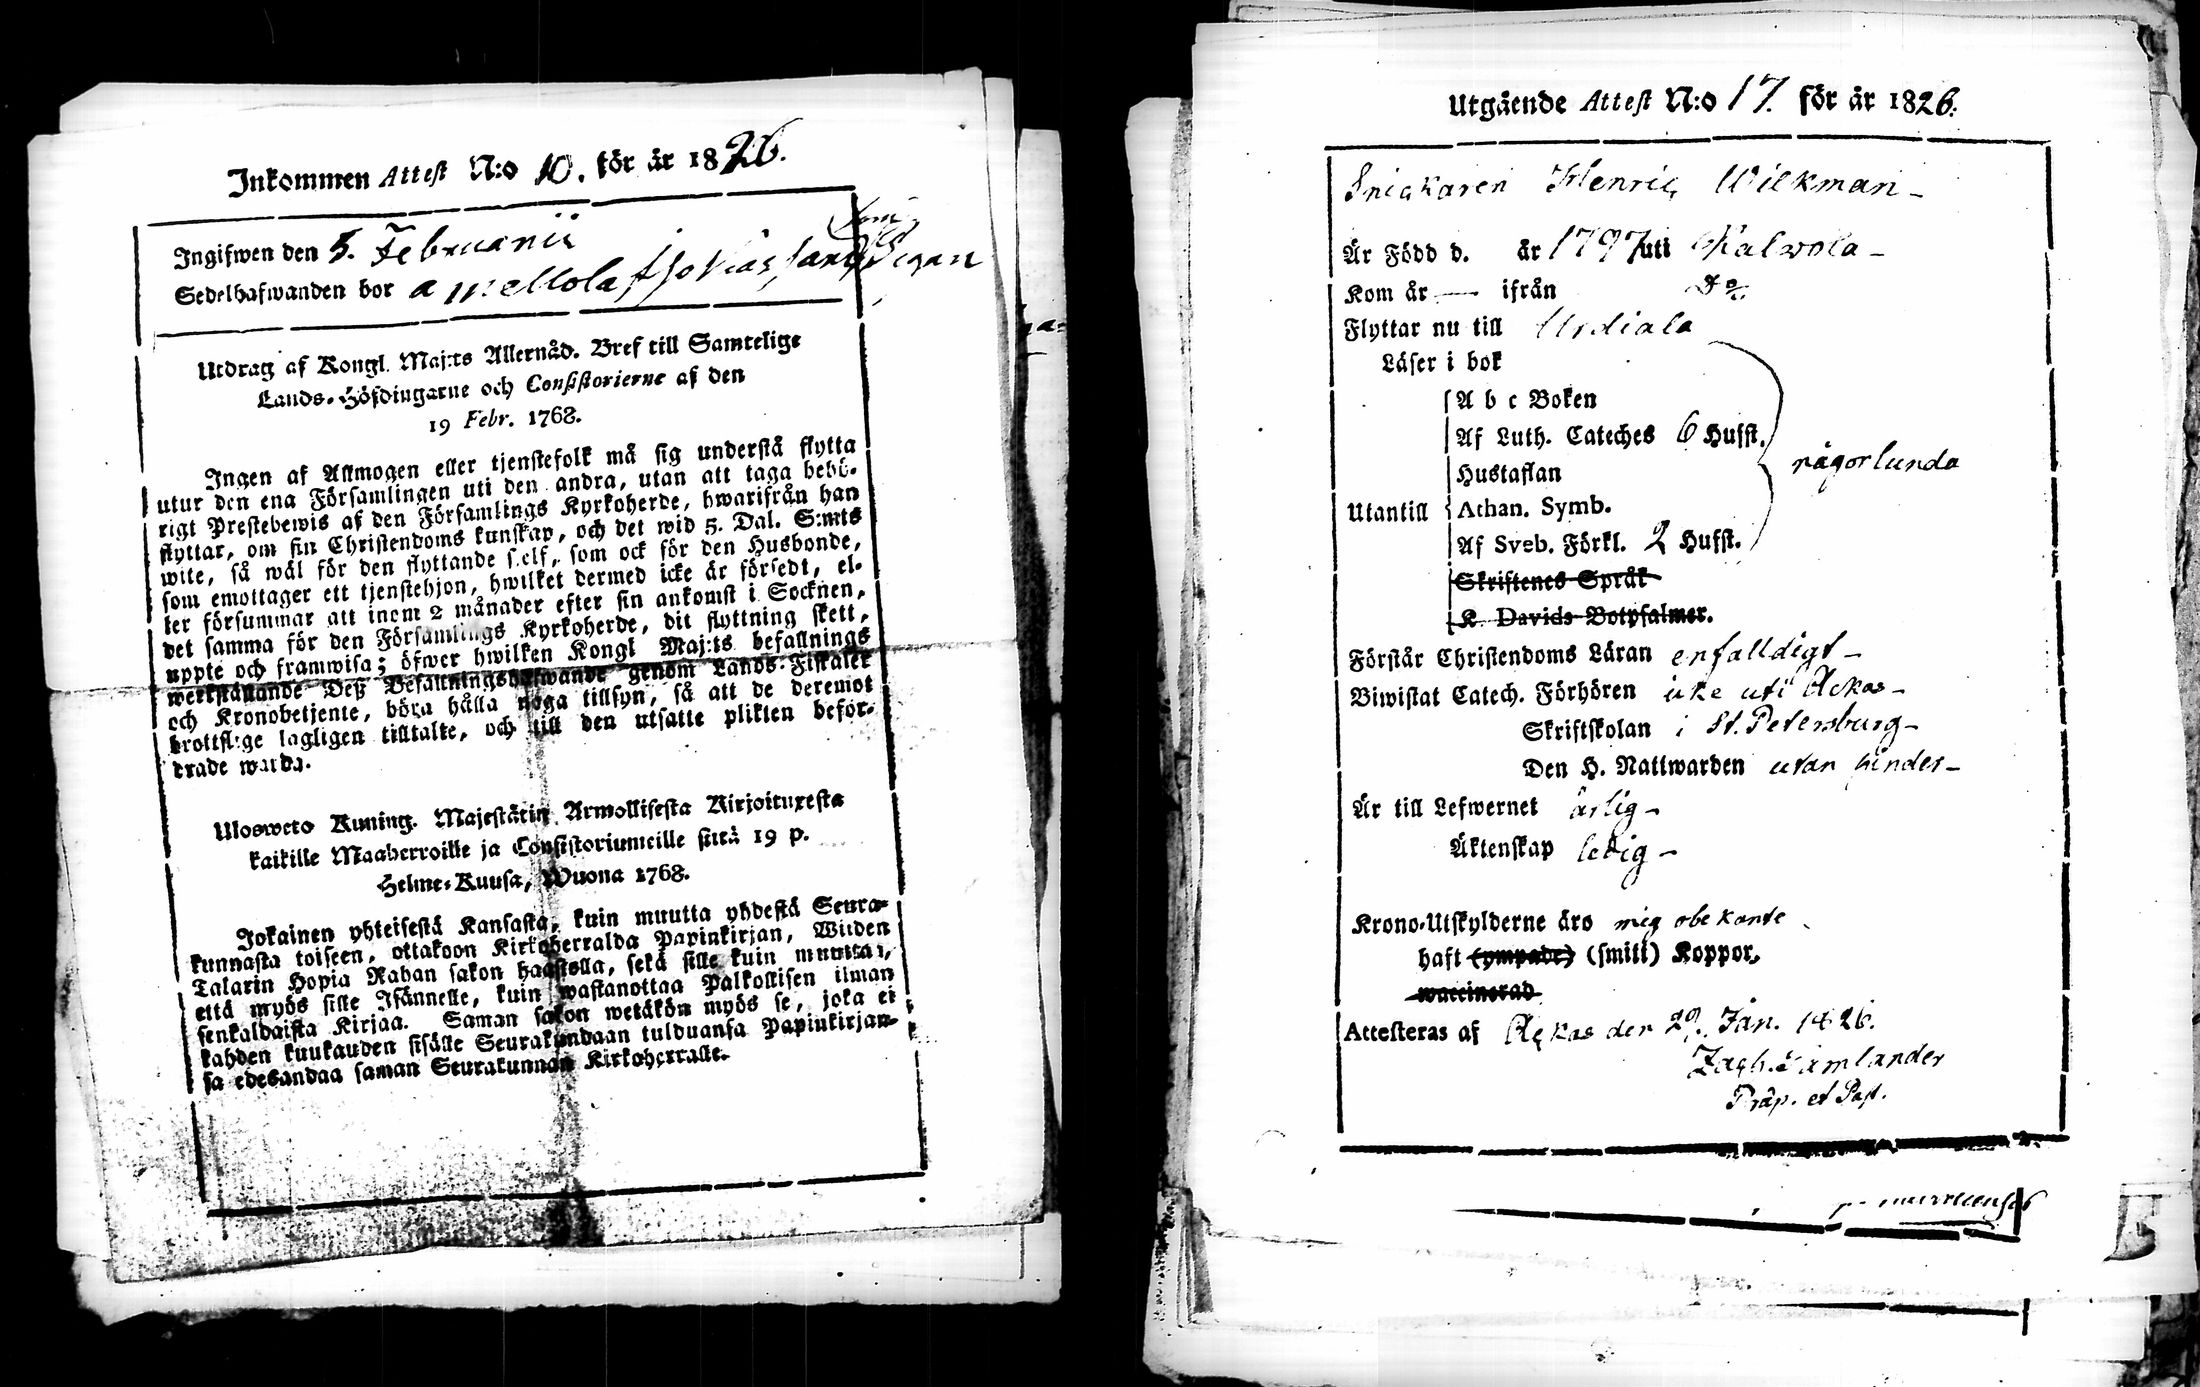 Inkommen Attest N:o 10. för år 1826.
Ingifwen den 5. Februarii
Sedelhafwanden bor a mellola
Utdrag af Kongl. Maj:ts Allernåd. Bref till Samtelige
Lands-Höfdingarne och Consistorierne af den
19 Febr. 1768.
Ingen af Allmogen eller tjenstefolk må sig understå flytta
utur den ena Församlingen uti den andra, utan att taga behö-
rigt Prestebewis af den Församlings Kyrkoherde, hwarifrån han
flyttar, om sin Christendoms kunskap, och det wid 5. Dal. S:mts
wite, så wäl för den flyttande self, som ock för den Husbonde,
som emottager ett tjenstehjon, hwilket dermed icke är försedt, el-
ler försummar att inom 2 månader efter sin ankomst i Socknen,
det samma för den Församlings Kyrkoherde, dit flyttning skett,
uppte och framwisa; öfwer hwilken Kongl Maj:ts befallnings
werkställande Deß Befallningshafwande genom Lands-Fiskaler
och Kronobetjente, böra hålla noga tillsyn, så att de deremot
brottslige lagligen tilltalte, och till den utsatte plikten befor-
drade warda.
Uloswcto Kuning. Majestätin Armollisesta Kirjoituxesta
kaikille Maaherroille ja Consistoriumeille siitä 19 p.
Helme-Kuusa, Wuona 1768.
Jokainen yhteisestä Kansasta, kuin muutta yhdestä Seura-
kunnasta toiseen, ottakoon Kirkoherralda Papinkirjan, Wiiden
Talarin Hopia Rahan sakon haastolla, sekä sille kuin muuttaa,
että myös sille Isännelle, kuin wastanottaa Palkollisen ilman
senkaldaista Kirjaa. Saman sakon wetäkön myös se, joka ei
kahden kuukauden sisälle Seurakundaan tulduansa Papinkirjan-
sa edesandaa saman Seurakunnan Kirkoherralle.
Utgående Attest N:o 17. för år 1826.
Snickaren Henric Wilkman -
Är Född d. år 1797 uti Kalwola -
Kom år — ifrån D:o
Flyttar nu till Urdiala
Läser i bok
A b c Boken
Af Luth. Cateches 6 Hufst.
Hustaflan
någorlunda
Utantill Athan. Symb.
Af Sveb. Förkl. 2 Hufst.
Skriftenes Språk
K. Davids Botpsalmer.
Förstår Christendoms Läran enfalldigt -
Biwistat Catech. Förhören icke uti Ackas -
Skriftskolan i St. Petersburg -
Den H. Nattwarden utan hinder -
Är till Lefwernet ärlig -
Äktenskap ledig -
Krono-Utskylderne äro mig obekante
haft (ympade) (smitt) Koppor,
waccinerad
Attesteras af Ackas den 29. Jan. 1826.
Zach. Cumlander
Präp. et Past.